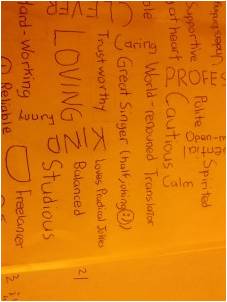 Supportive
at heart
Polite
Spirited
PROFE
Calm
Cautious
World-renowned Translator
Caring
Great Singer (half joking :))
CLEVER
Trustworthy
Loves Practical Jokes
LOVING
Balanced
21
Studious
Hard-Working
Freelancer
Reliable